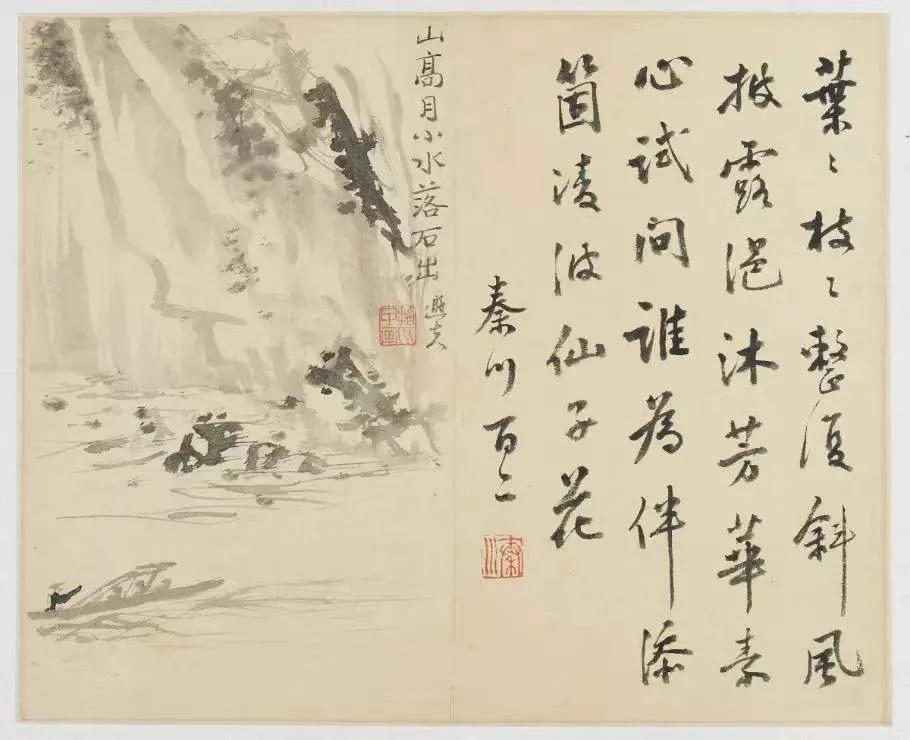 葉〻枝〻整復斜風
披露浥沐芳華素
心試問誰為伴添
箇淩波仙子花
秦川百二
秦川
山高月小水落石出